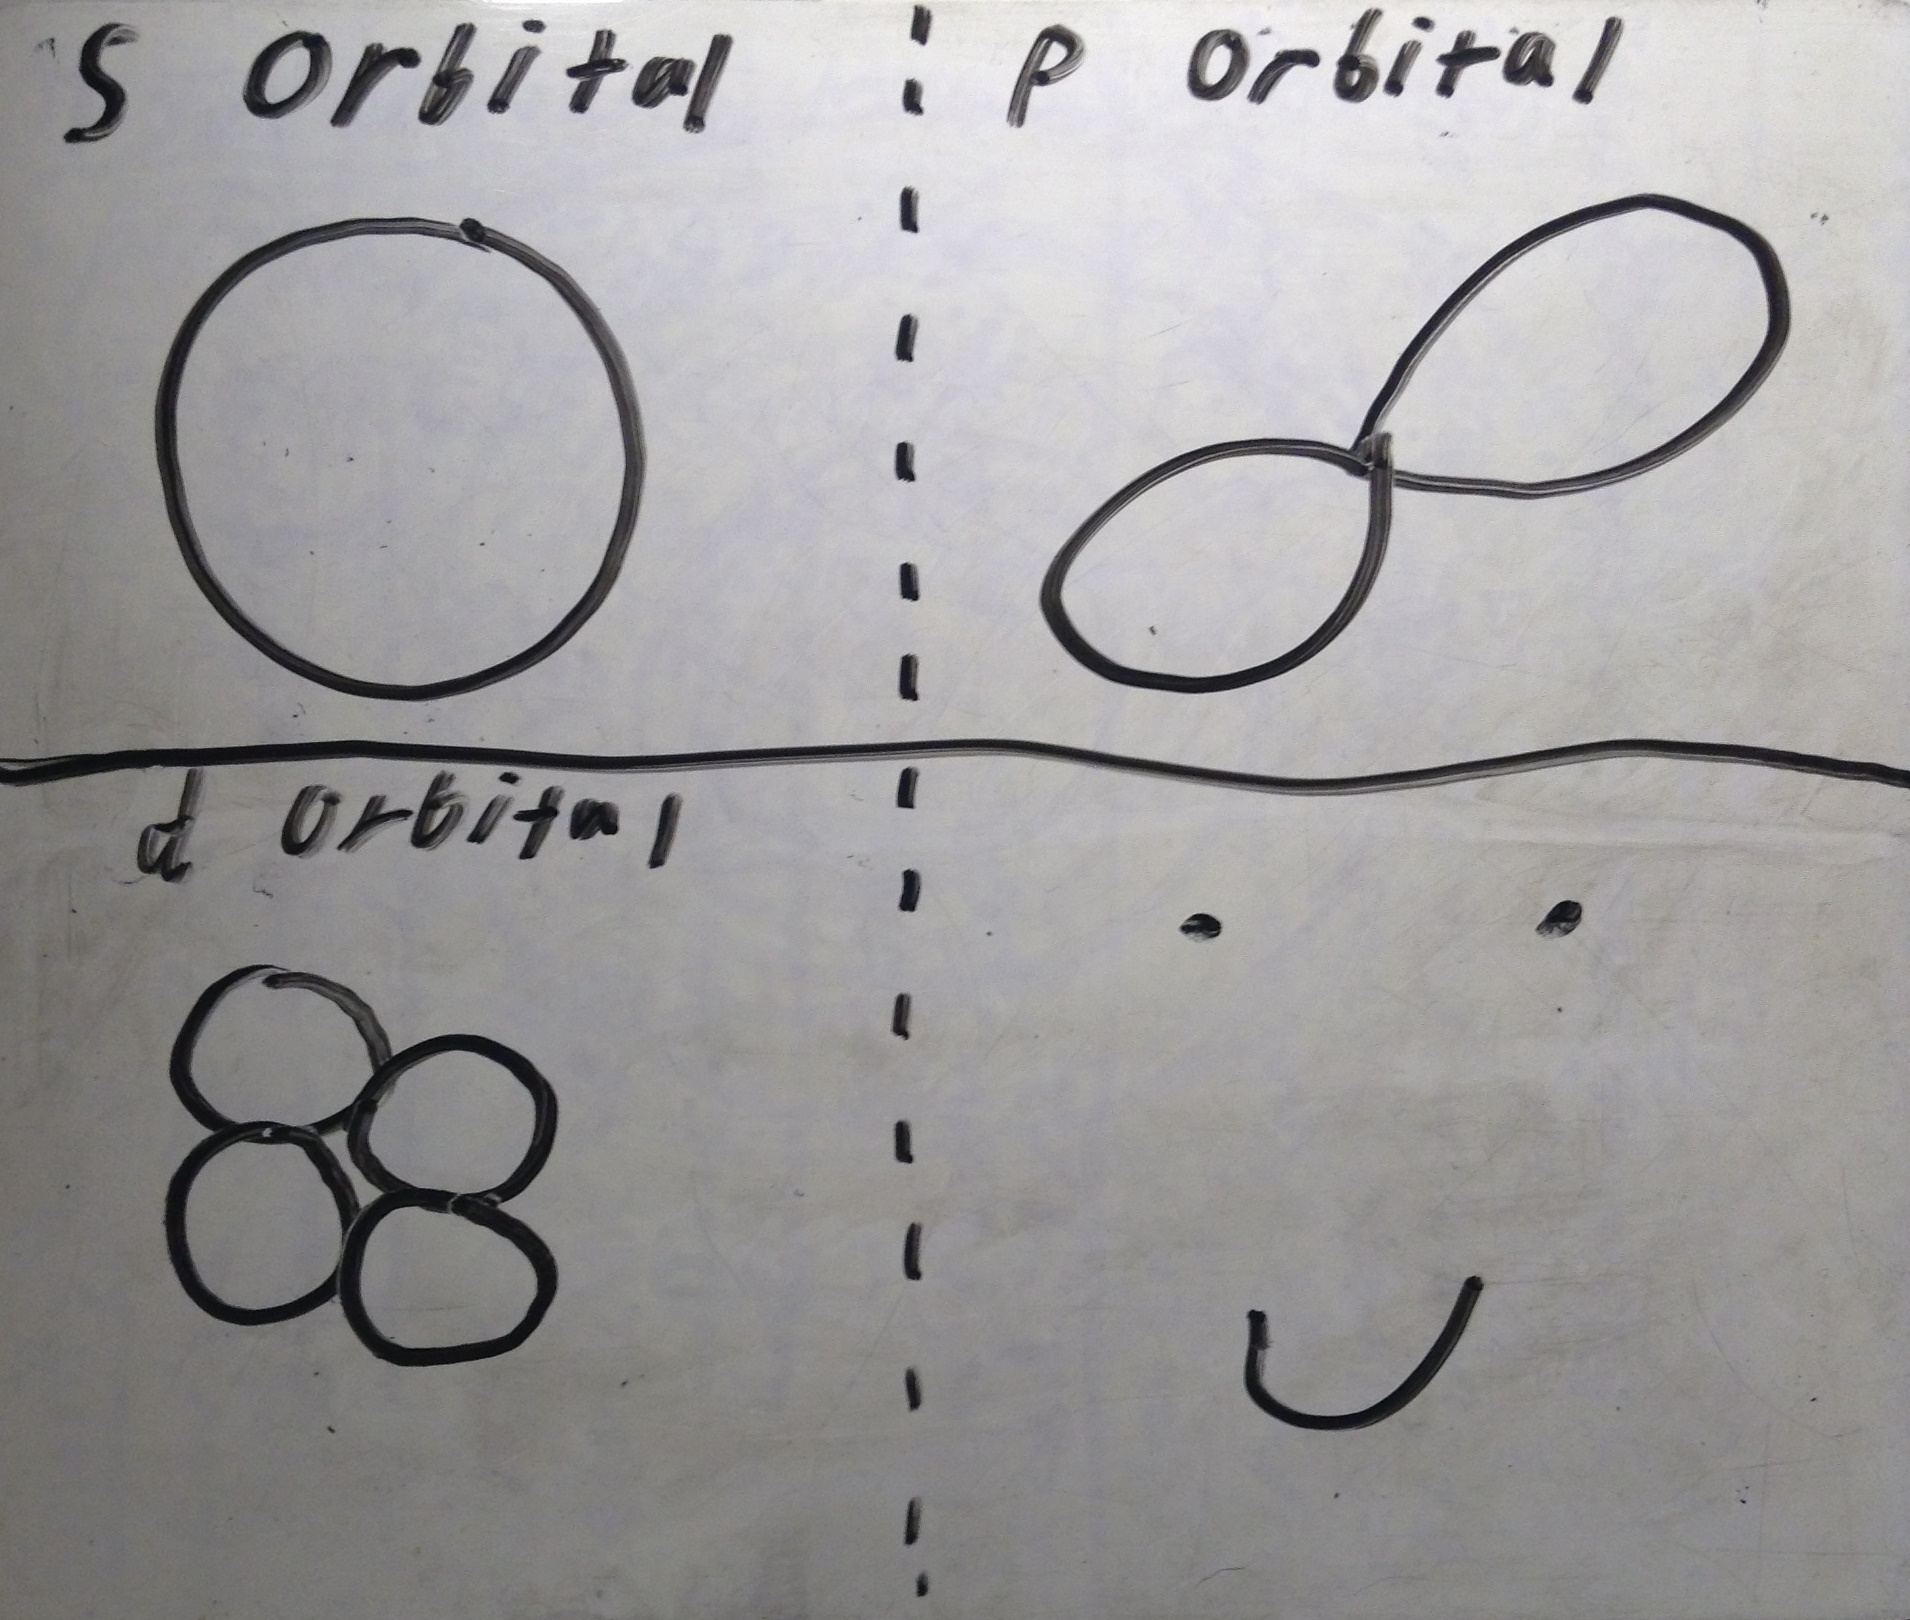 S Orbital
P Orbital
d Orbital